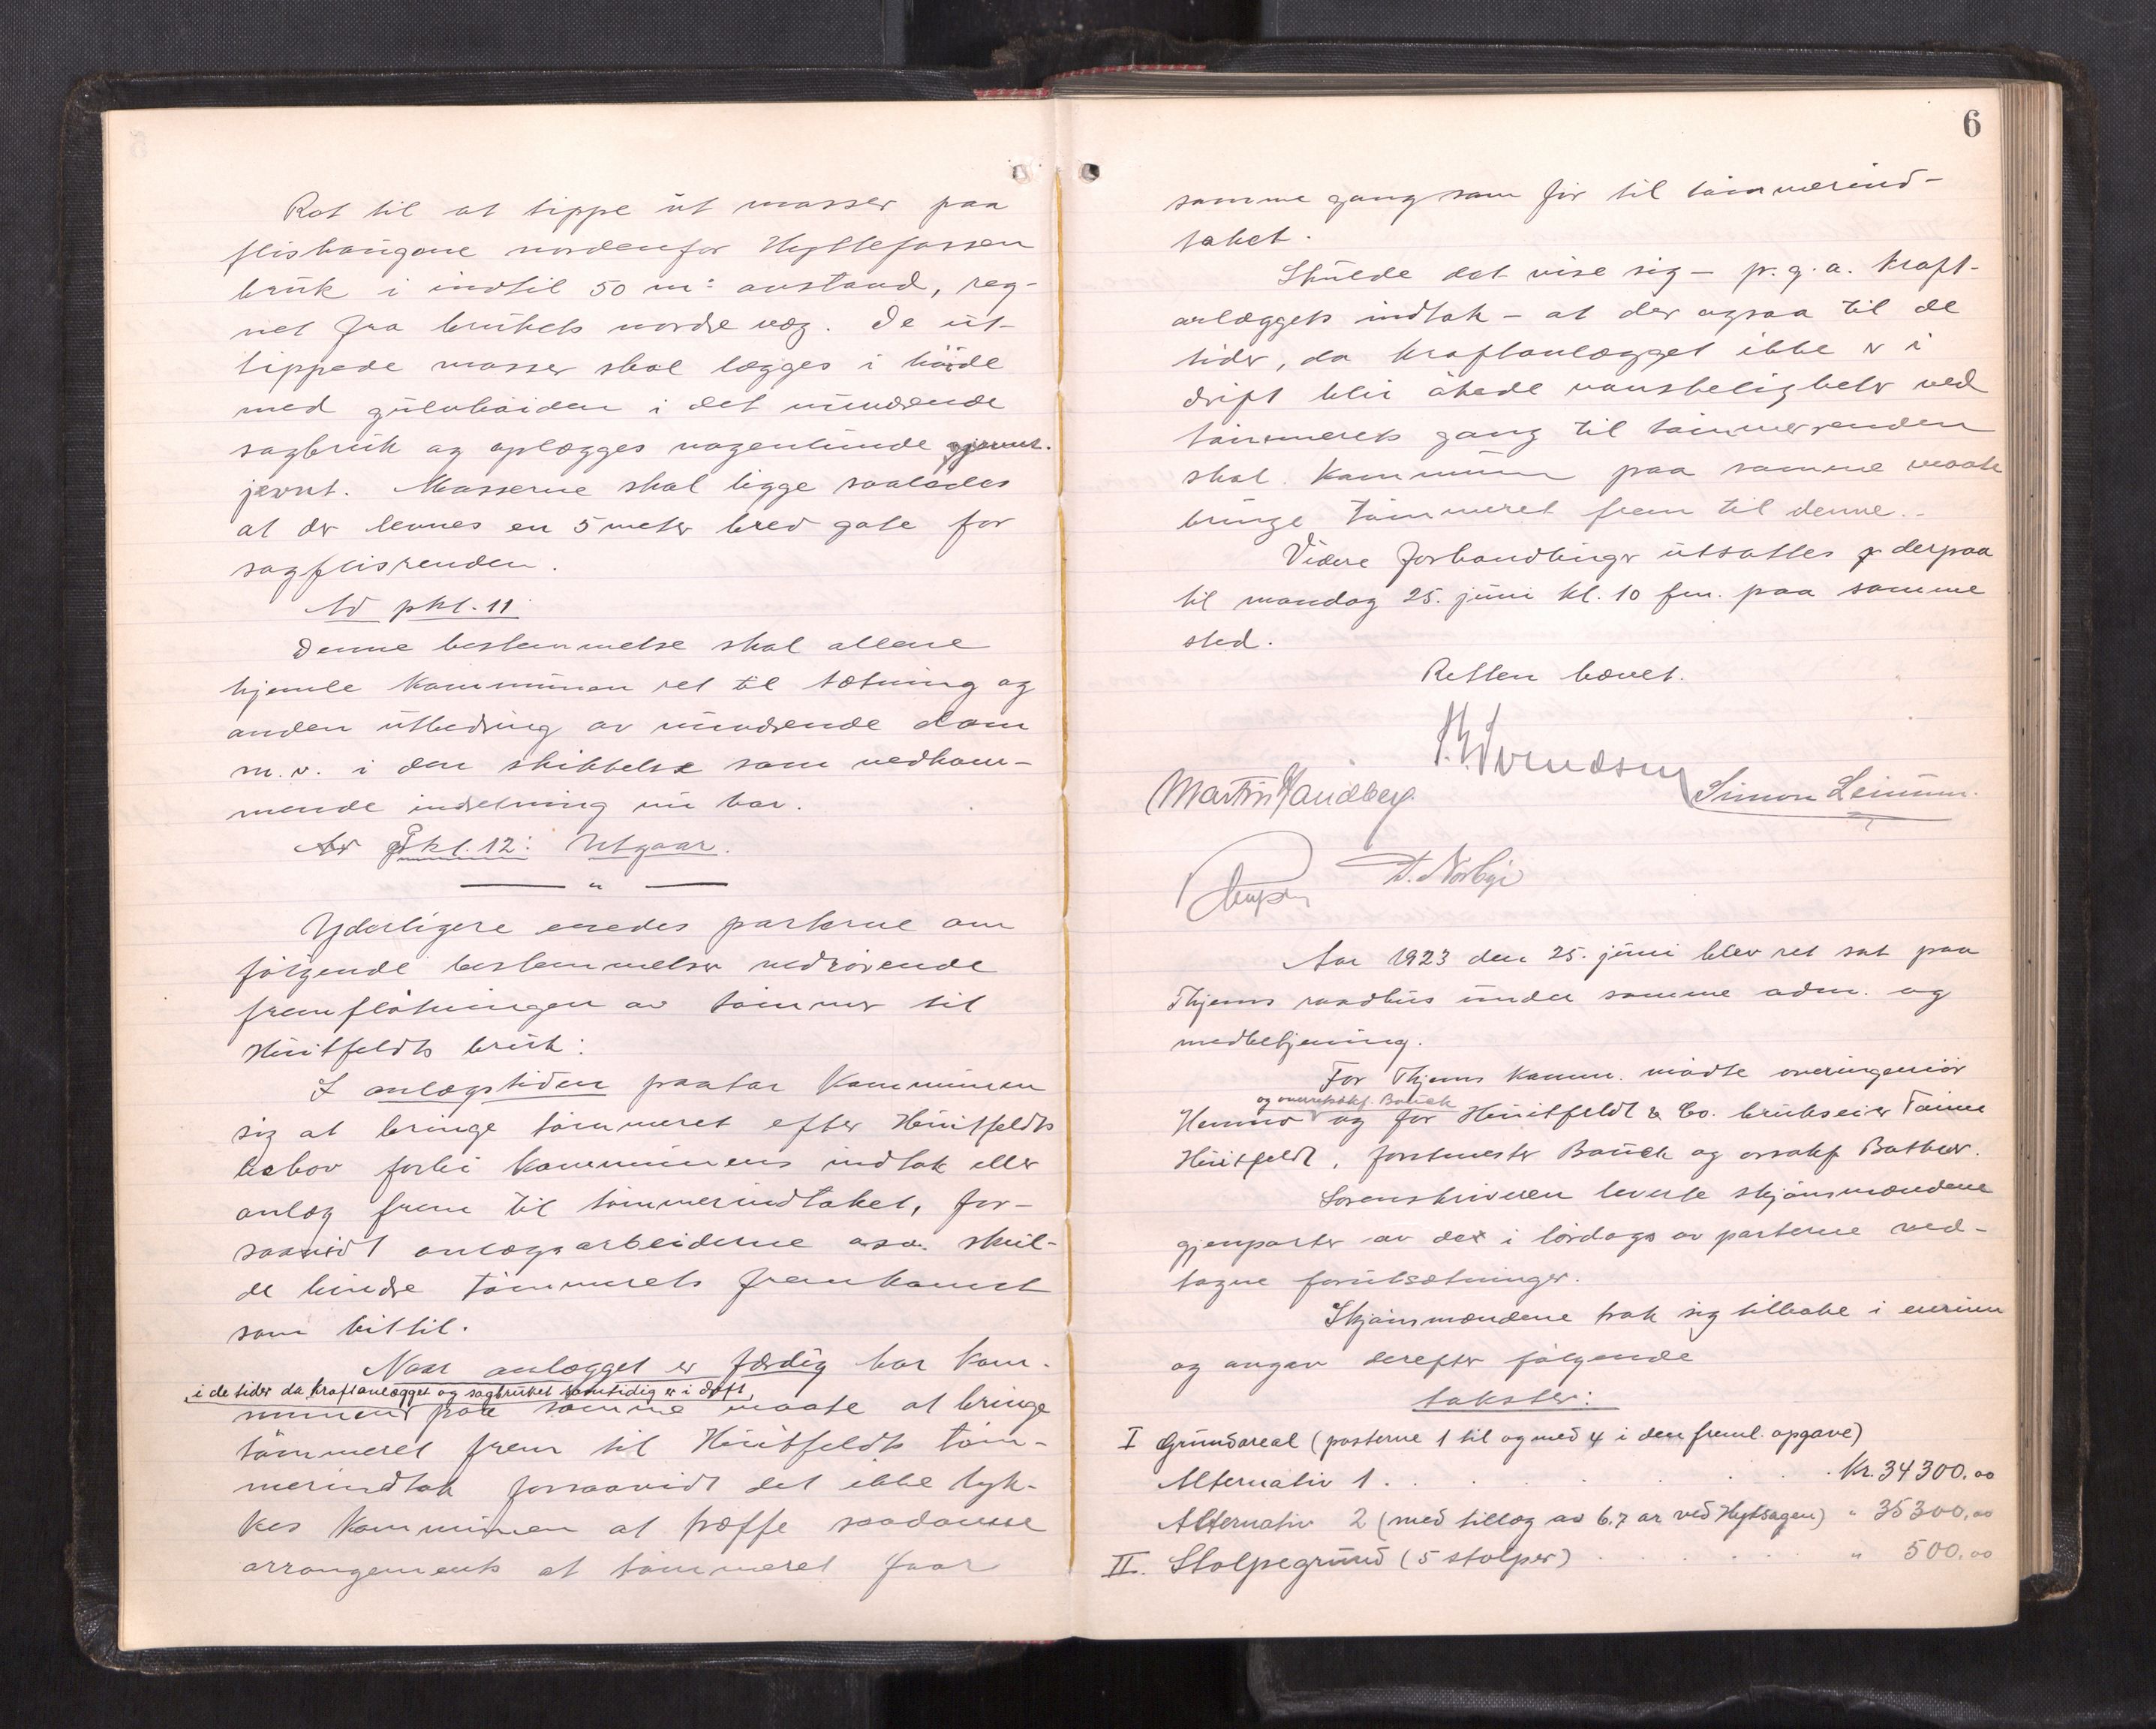 Ret til at tippe ut masser paa
flishaugene nordenfor Hyttefossen
bruk i indtil 50 m: avstand, reg-
net fra brukets nordre væg. De ut-
tippede masser skal lægges i höide
med gulvhöiden i det nuværende
sagbruk og oplægges nogenlunde
jevnt. Masserne skal ligge saaledes
at der levnes en 5 meter bred gate for
sagflisrenden.
Ad pkt. 11
Denne bestemmelse skal allene
hjemle kommunen ret til tætning og
anden utbedring av nuværende dam
m.v. i den skikkelse som vedkom-
mende indretning nu har.
Ad Pkt. 12: Utgaar.
Yderligere enedes parterne om
følgende bestemmelser vedrörende
fremflötningen av tömmer til
Huitfeldts bruk:
I anlægstiden paatar Kommunen
sig at bringe tömmeret efter Huitfeldts
behov forbi kommunens indtak eller
anlæg frem til tömmerindtaket, for-
saavidt anlægsarbeiderne o.s.v. skul-
de hindre tömmerets fremkomst
som hittil.
Naar anlægget er færdig har kom-
i de tider da kraftanlægget og sagbruket samtidig er i drift,
munen paa samme maate at bringe
tömmeret frem til Huitfeldts töm-
merindtak forsaavidt det ikke lyk-
kes kommunen at træffe saadanne
arrangements at tömmeret faar
6
samme gang som för til tömmerind-
taket.
Skulde det vise sig - p.g.a. kraft-
anlæggets indtak - at der ogsaa til de
tider, da kraftanlægget ikke er i
drift blir ökede vanskeligheter ved
tömmerets gang til tömmerrenden
skal kommunen paa samme maate
bringe tömmeret frem til denne.-
Videre forhandlinger utsattes derpaa
til mandag 25. juni kl. 10 fm. paa samme
sted.
Retten hævet.
Martin Sandberg.
Simon Leinum.
Aar 1923 den 25. juni blev ret sat paa
Thjems raadhus under samme adm. og
medbetjening.
For Thjems komm. mödte overingeniör
og overretssakf. Bauck
og for Huitfeldt & Co. brukseier Tönne
Huitfeldt, forstmester Bauck og orsakf Bather.
Sorenskriveren leverte skjönsmændene
gjenparter av de i lördags av parterne ved-
tagne forutsætninger.
Skjönsmændene trak sig tilbake i enrum
og avgav derefter følgende
takster:
I Grundareal (posterne 1 til og med 4 i den freml. opgave)
Alternativ 1. . . . . . . Kr. 34300.00
Alternativ 2 (med tillæg av 6.7 ar ved Hytsagen) " 35300,00
II. Stolpegrund (5 stolper) . . . . . " 500,00